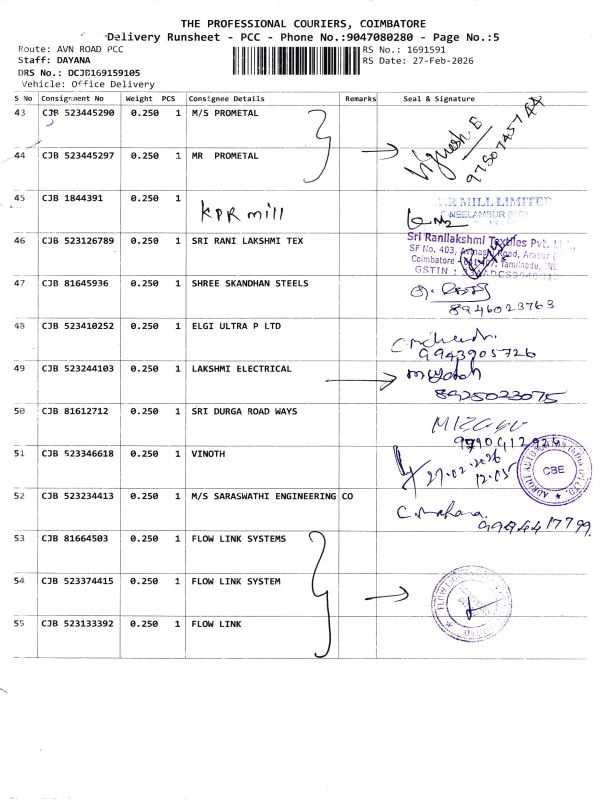 THE PROFESSIONAL COURIERS, COIMBATORE
Delivery Runsheet - PCC - Phone No.:9047080280 - Page No.:5
Route: AVN ROAD PCC
RS No.: 1691591
Staff: DAYANA
RS Date: 27-Feb-2026
DRS No.: DCJB169159105
Vehicle: Office Delivery
S No Consignment No Weight PCS Consignee Details Remarks Seal & Signature
43 CJB 523445290 0.250 1 M/S PROMETAL
Vignesh E
9750745744
44 CJB 523445297 0.250 1 MR PROMETAL
45 CJB 1844391 0.250 1 KPR mill
MILL LIMITED
NEELAMBUR
46 CJB 523126789 0.250 1 SRI RANI LAKSHMI TEX
Sri Ranilakshmi Textiles Pvt.
SF No. 403, Avinashi Road, Arasur
Coimbatore Tamilnadu,
GSTIN :
47 CJB 81645936 0.250 1 SHREE SKANDHAN STEELS
8946023763
48 CJB 523410252 0.250 1 ELGI ULTRA P LTD
9943905726
49 CJB 523244103 0.250 1 LAKSHMI ELECTRICAL
8925023075
50 CJB 81612712 0.250 1 SRI DURGA ROAD WAYS
51 CJB 523346618 0.250 1 VINOTH
27.02.2026
12.05
CBE
52 CJB 523234413 0.250 1 M/S SARASWATHI ENGINEERING CO
53 CJB 81664503 0.250 1 FLOW LINK SYSTEMS
54 CJB 523374415 0.250 1 FLOW LINK SYSTEM
FLOW
55 CJB 523133392 0.250 1 FLOW LINK